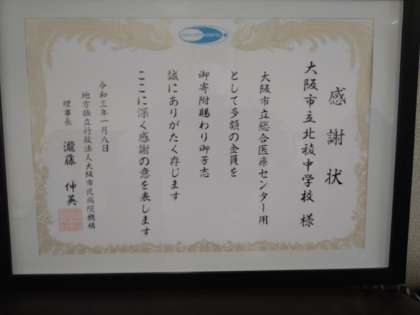 感謝状
大阪市立北稜中学校 様
大阪市立総合医療センター用
として多額の金員を
御寄附賜わり御芳志
誠にありがたく存じます
ここに深く感謝の意を表します
令和三年一月八日
地方独立行政法人大阪市民病院機構
理事長 瀧藤 伸英